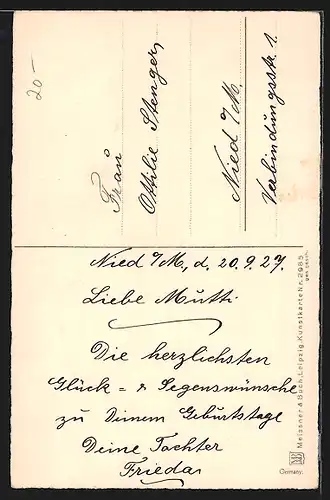 20.-
Frau
Ottilie Stenger
Nied a/M.
Verbindungsstr. 1.
Nied a/M., d. 20.9.27.
Liebe Mutti.
Die herzlichsten
Glück = & Segenswünsche
zu Deinem Geburtstage
Deine Tochter
Frieda
Meissner & Buch, Leipzig. Kunstkarte Nr. 2985
Germany.